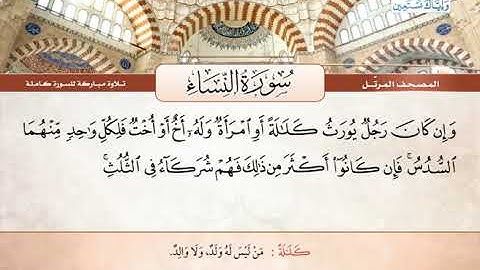 وَإِيَّاكَ نَسْتَعِينُ
المصحف المرتّل
سُورَةُ النِّسَاءِ
تلاوة مباركة للسورة كاملة
وَإِن كَانَ رَجُلٌ يُورَثُ كَلَٰلَةً أَوِ ٱمْرَأَةٌ وَلَهُۥٓ أَخٌ أَوْ أُخْتٌ فَلِكُلِّ وَٰحِدٍ مِّنْهُمَا
ٱلسُّدُسُ ۚ فَإِن كَانُوٓا۟ أَكْثَرَ مِن ذَٰلِكَ فَهُمْ شُرَكَآءُ فِى ٱلثُّلُثِ ۚ
كَلَٰلَةً : مَنْ لَيْسَ لَهُ وَلَدٌ، وَلَا وَالِدٌ.